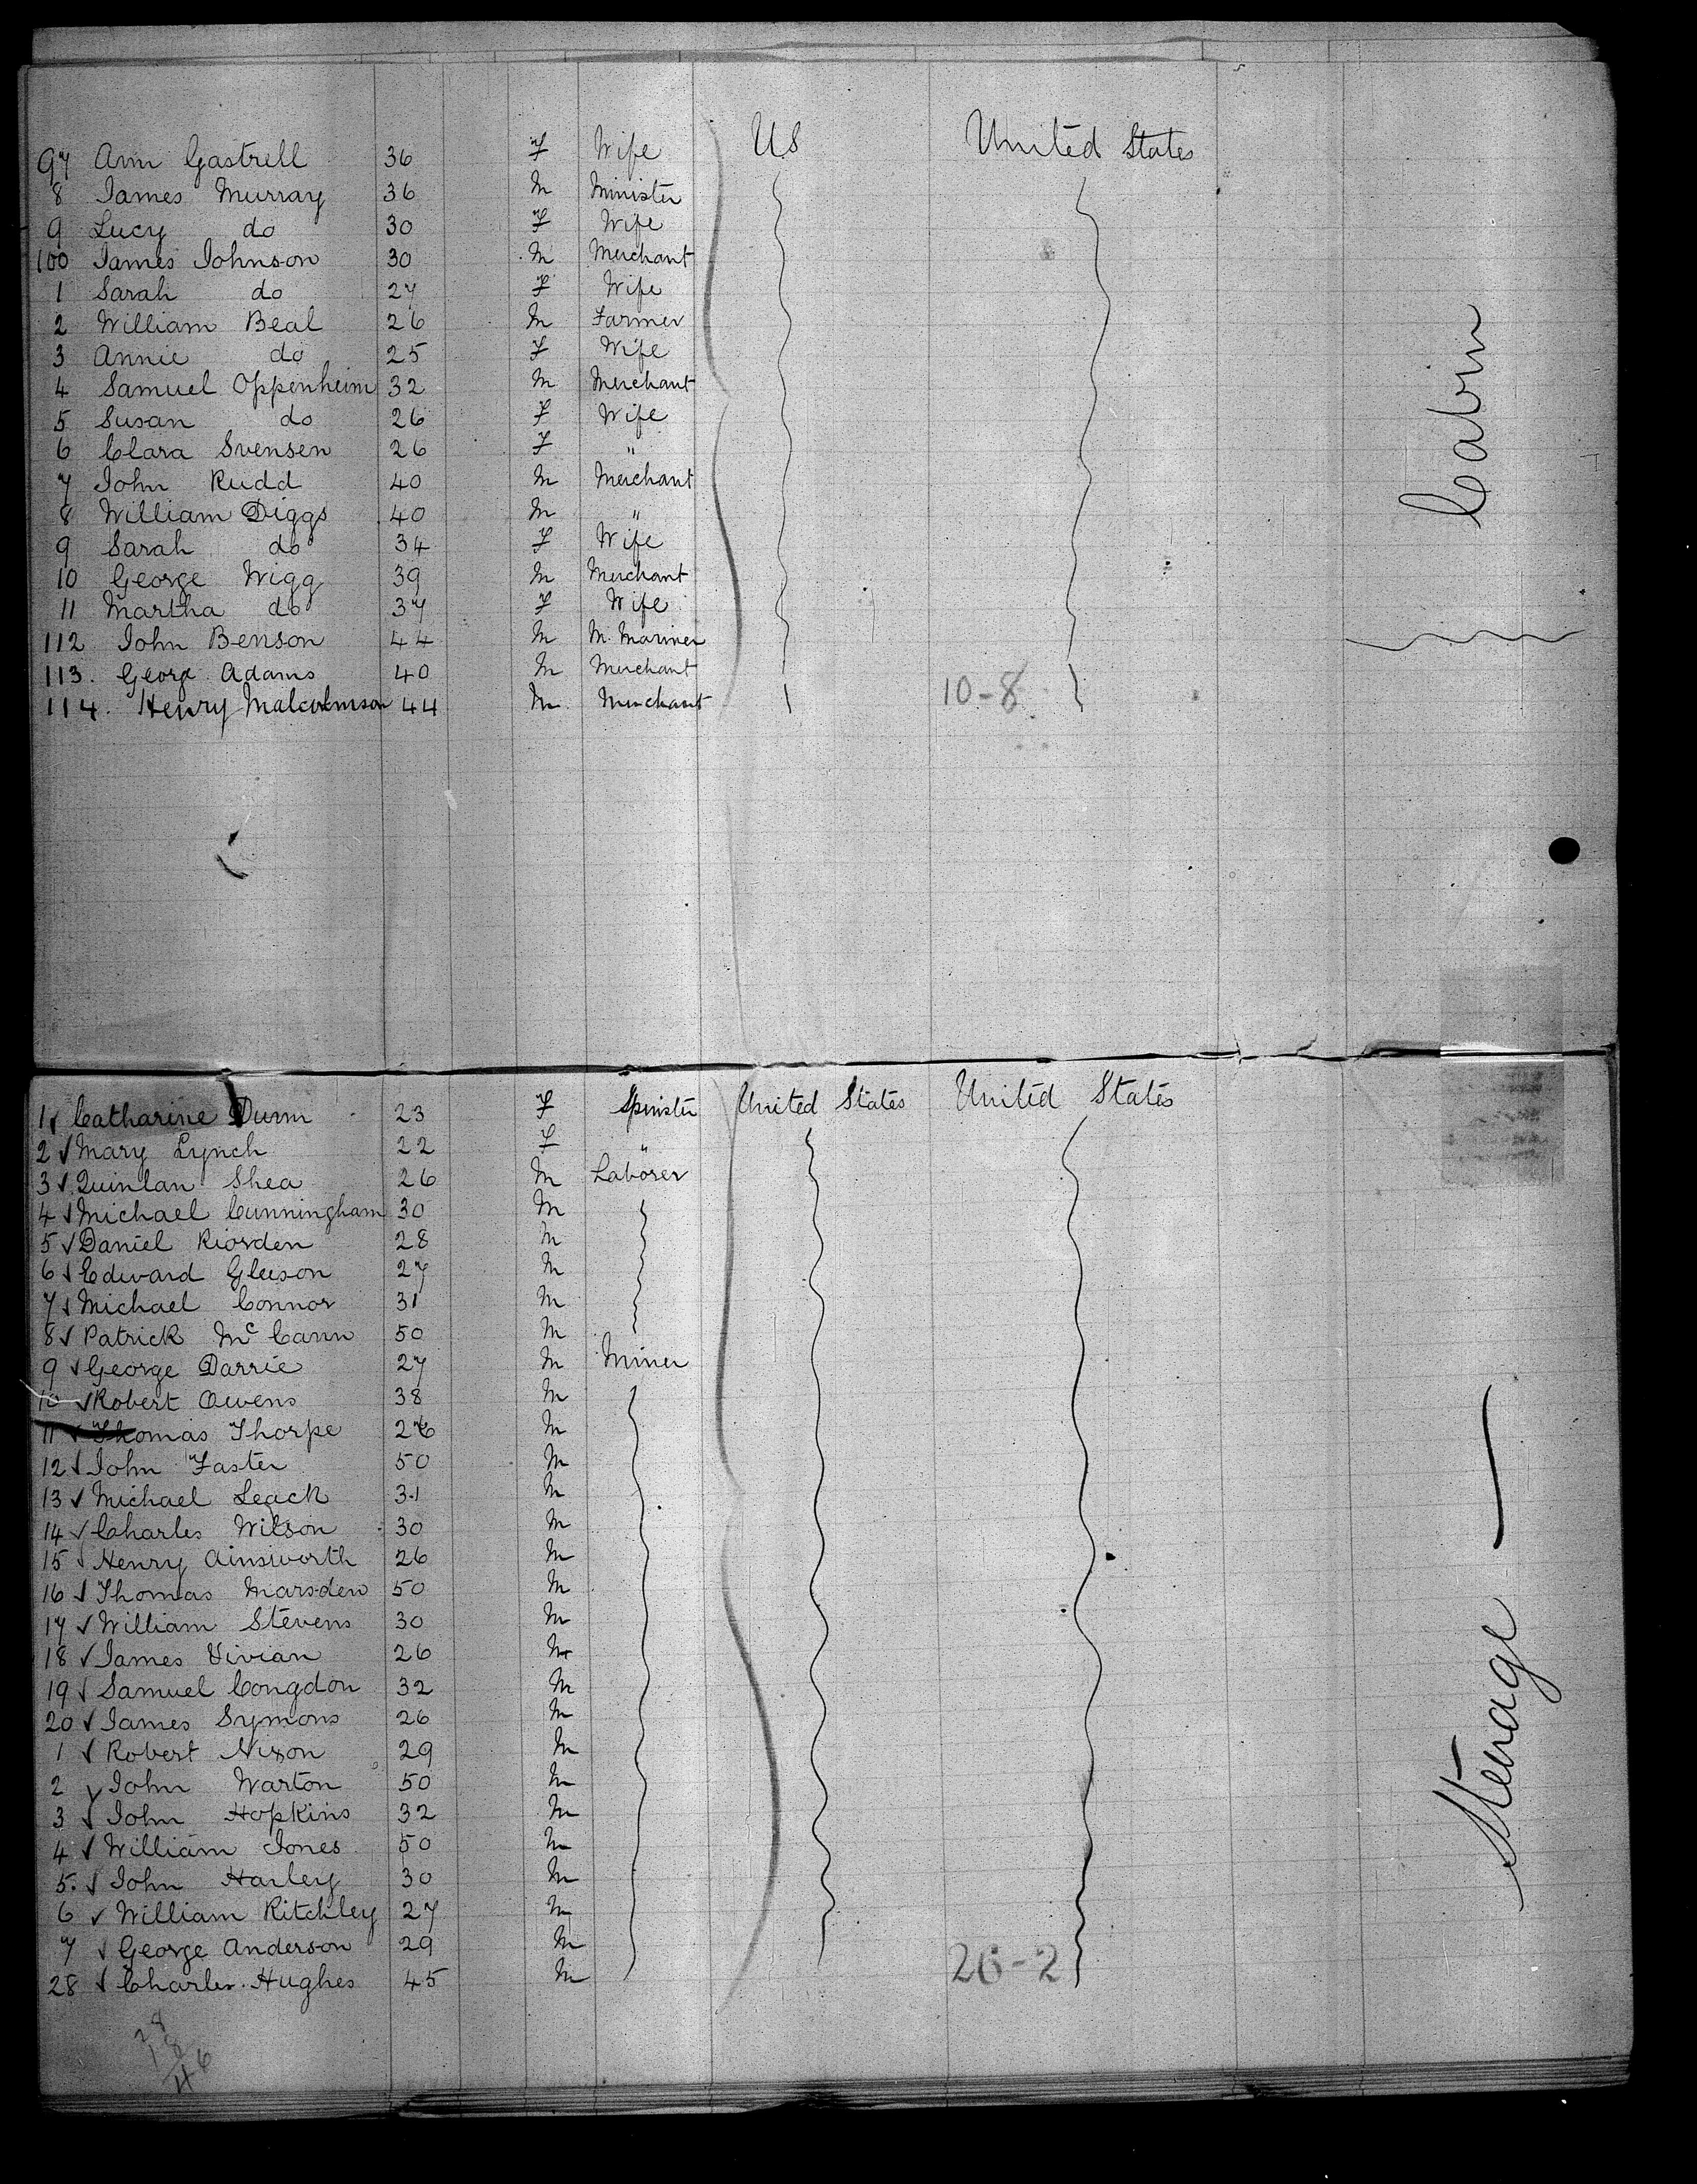 97 Ann Gastrell 36 F Wife US United States
8 James Murray 36 M Minister
9 Lucy do 30 F Wife
100 James Johnson 30 M Merchant
1 Sarah do 27 F Wife
2 William Beal 26 M Farmer
3 Annie do 25 F Wife
4 Samuel Oppenheim 32 M Merchant
5 Susan do 26 F Wife
6 Clara Svensen 26 F "
7 John Rudd 40 M Merchant
8 William Diggs 40 M "
9 Sarah do 34 F Wife
10 George Wigg 39 M Merchant
11 Martha do 37 F Wife
112 John Benson 44 M M. Mariner
113. Georg Adams 40 M Merchant
114. Henry Malcolmson 44 M Merchant 10-8
Cabin
1 Catharine Dunn 23 F Spinster United States United States
2 Mary Lynch 22 F "
3 Quinlan Shea 26 M Laborer
4 Michael Cunningham 30 M
5 Daniel Riorden 28 M
6 Edward Gleeson 27 M
7 Michael Connor 31 M
8 Patrick McCann 50 M
9 George Darrie 27 M Miner
10 Robert Owens 38 M
11 Thomas Thorpe 26 M
12 John Faster 50 M
13 Michael Leack 31 M
14 Charles Wilson 30 M
15 Henry Ainsworth 26 M
16 Thomas Marsden 50 M
17 William Stevens 30 M
18 James Vivian 26 M
19 Samuel Congdon 32 M
20 James Symons 26 M
1 Robert Nixon 29 M
2 John Warton 50 M
3 John Hopkins 32 M
4 William Jones 50 M
5. John Harley 30 M
6 William Ritchley 27 M
7 George Anderson 29 M
28 Charles Hughes 45 M 26-2
Sterage
28
18
46